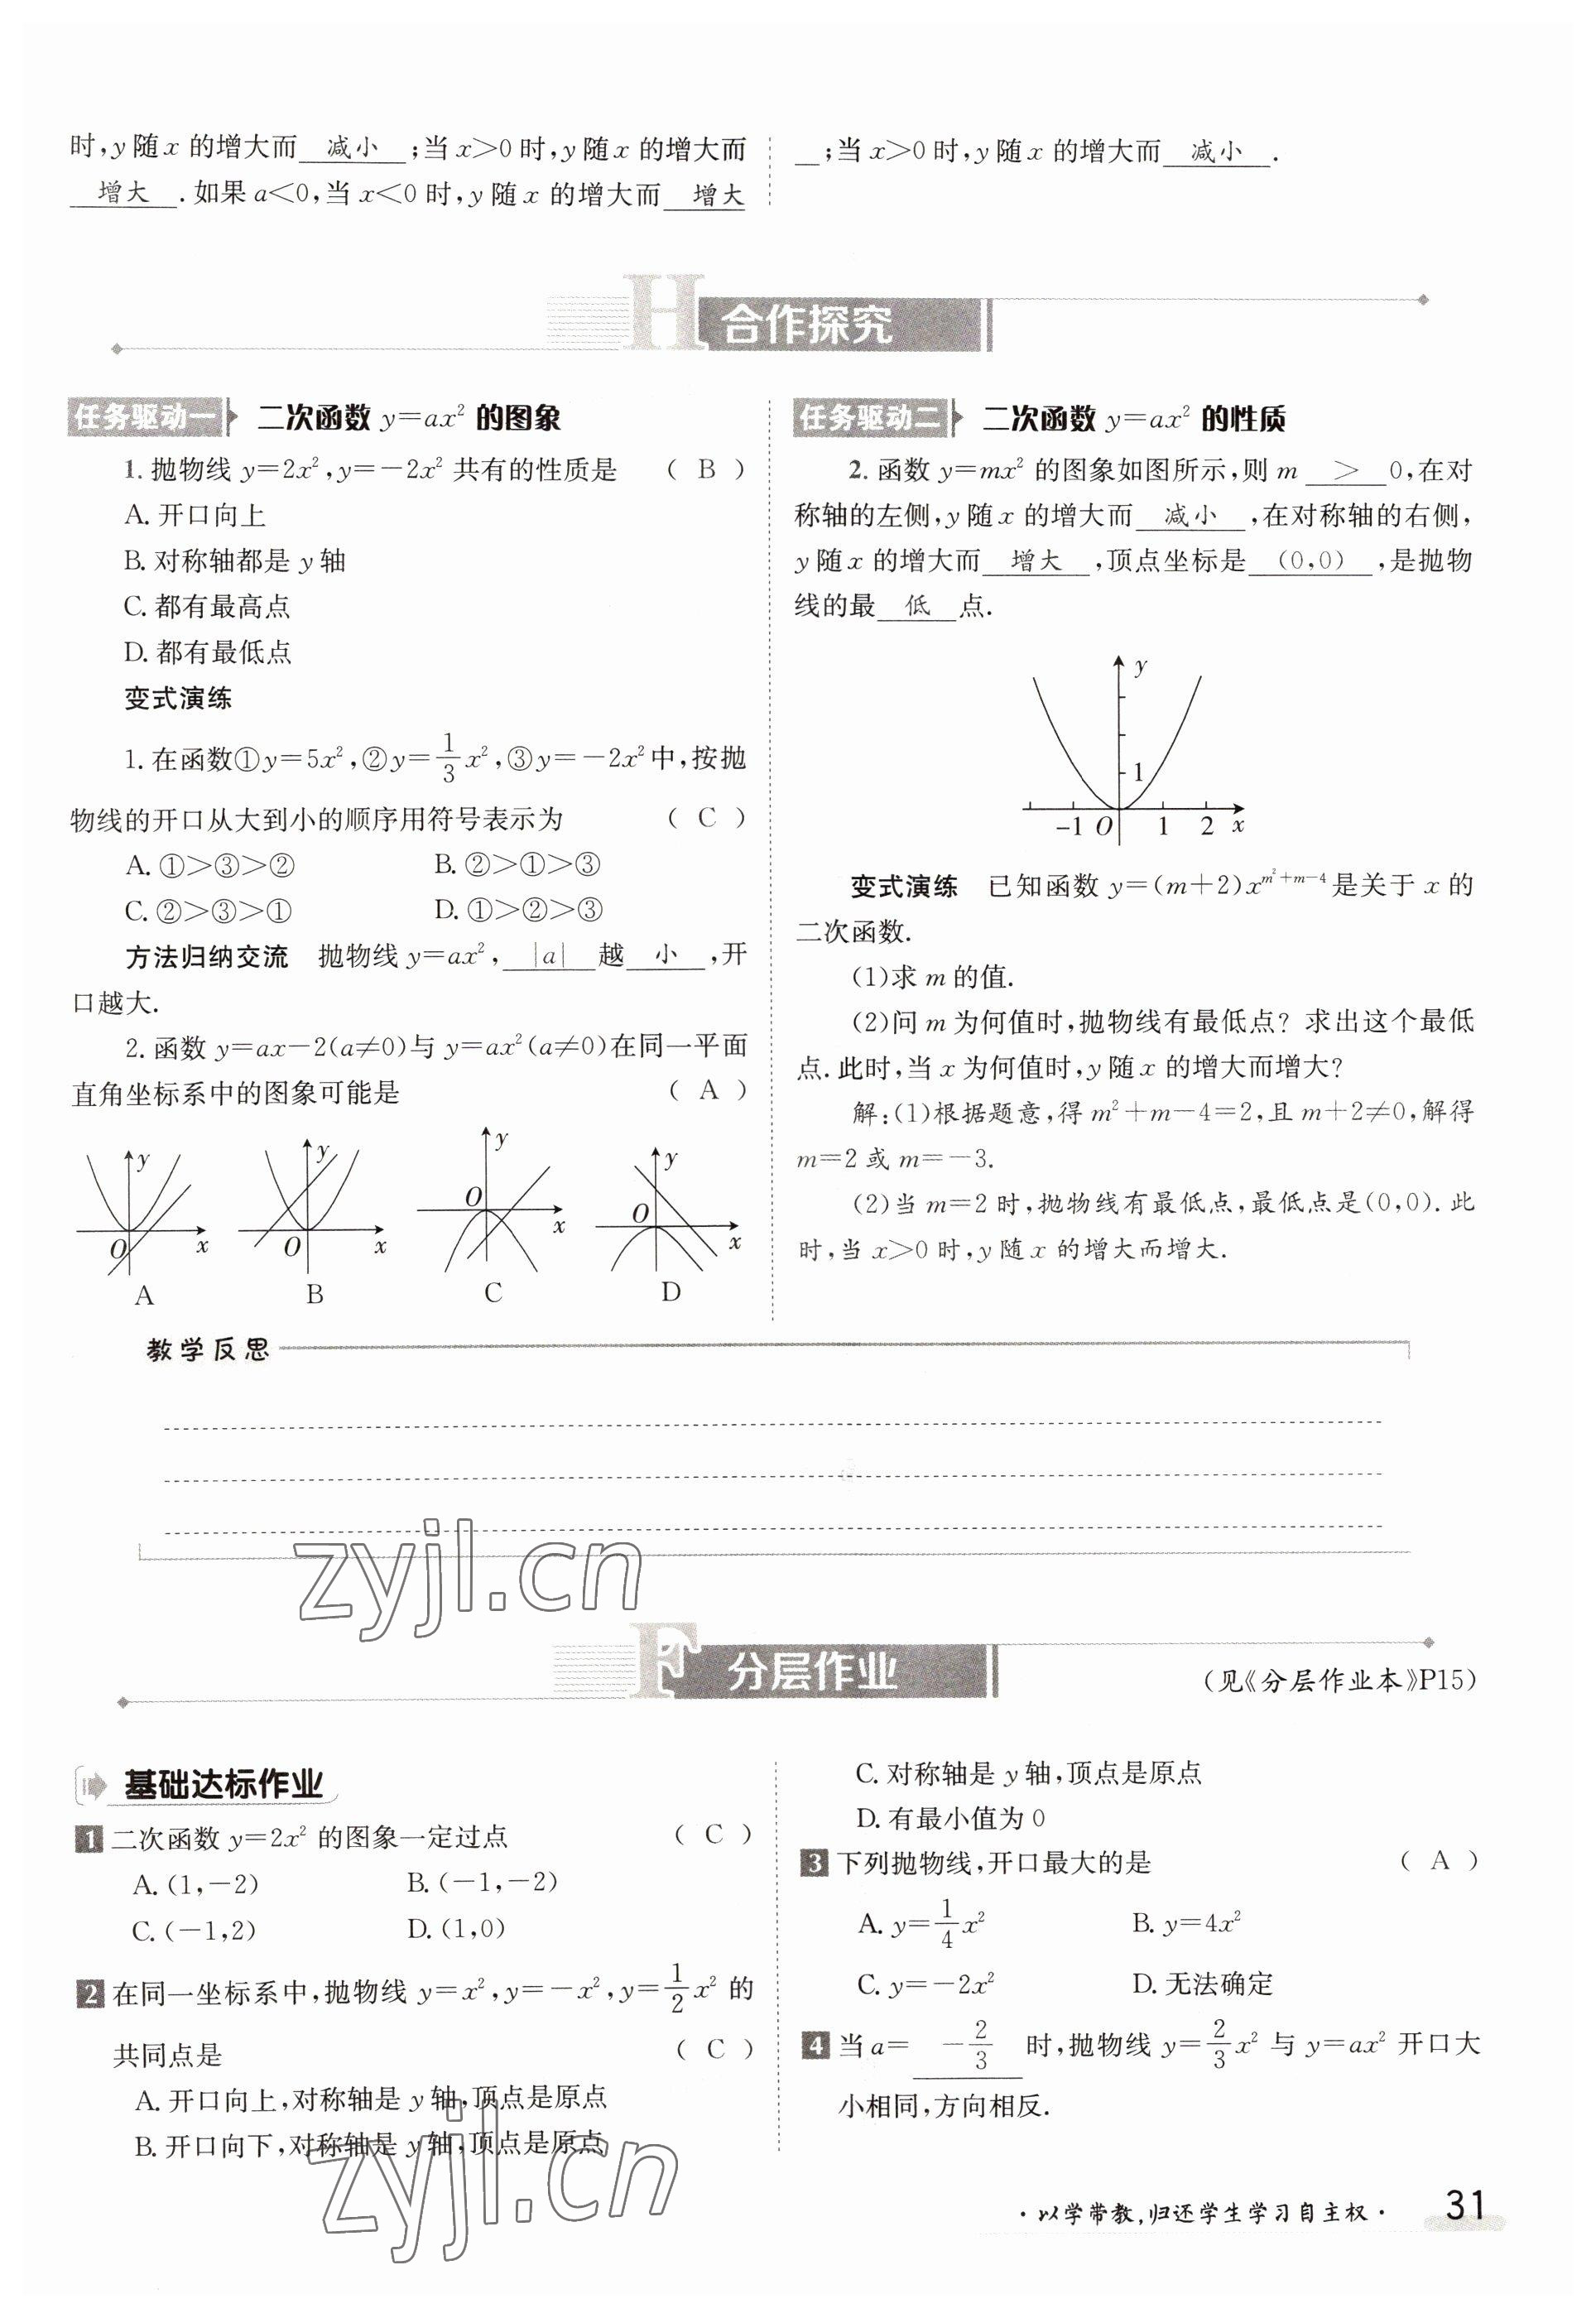 时,y随x的增大而 减小 ;当x>0时,y随x的增大而
增大 .如果a<0,当x<0时,y随x的增大而 增大
;当x>0时,y随x的增大而 减小 .
H 合作探究
任务驱动一 二次函数y=ax²的图象
1. 抛物线y=2x²,y=-2x²共有的性质是 ( B )
A. 开口向上
B. 对称轴都是y轴
C. 都有最高点
D. 都有最低点
变式演练
1. 在函数①y=5x²,②y=1/3x²,③y=-2x²中,按抛
物线的开口从大到小的顺序用符号表示为 ( C )
A. ①>③>② B. ②>①>③
C. ②>③>① D. ①>②>③
方法归纳交流 抛物线y=ax², |a| 越 小 ,开
口越大.
2. 函数y=ax-2(a≠0)与y=ax²(a≠0)在同一平面
直角坐标系中的图象可能是 ( A )
y O x A
y O x B
y O x C
y O x D
任务驱动二 二次函数y=ax²的性质
2. 函数y=mx²的图象如图所示,则m > 0,在对
称轴的左侧,y随x的增大而 减小 ,在对称轴的右侧,
y随x的增大而 增大 ,顶点坐标是 (0,0) ,是抛物
线的最 低 点.
y
1
-1 O 1 2 x
变式演练 已知函数y=(m+2)x^{m²+m-4}是关于x的
二次函数.
(1)求m的值.
(2)问m为何值时,抛物线有最低点?求出这个最低
点.此时,当x为何值时,y随x的增大而增大?
解:(1)根据题意,得m²+m-4=2,且m+2≠0,解得
m=2或m=-3.
(2)当m=2时,抛物线有最低点,最低点是(0,0).此
时,当x>0时,y随x的增大而增大.
教学反思
zyjl.cn
F 分层作业
(见《分层作业本》P15)
基础达标作业
1 二次函数y=2x²的图象一定过点 ( C )
A. (1,-2) B. (-1,-2)
C. (-1,2) D. (1,0)
2 在同一坐标系中,抛物线y=x²,y=-x²,y=1/2x²的
共同点是 ( C )
A. 开口向上,对称轴是y轴,顶点是原点
B. 开口向下,对称轴是y轴,顶点是原点
zyjl.cn
C. 对称轴是y轴,顶点是原点
D. 有最小值为0
3 下列抛物线,开口最大的是 ( A )
A. y=1/4x² B. y=4x²
C. y=-2x² D. 无法确定
4 当a= -2/3 时,抛物线y=2/3x²与y=ax²开口大
小相同,方向相反.
·以学带教,归还学生学习自主权· 31